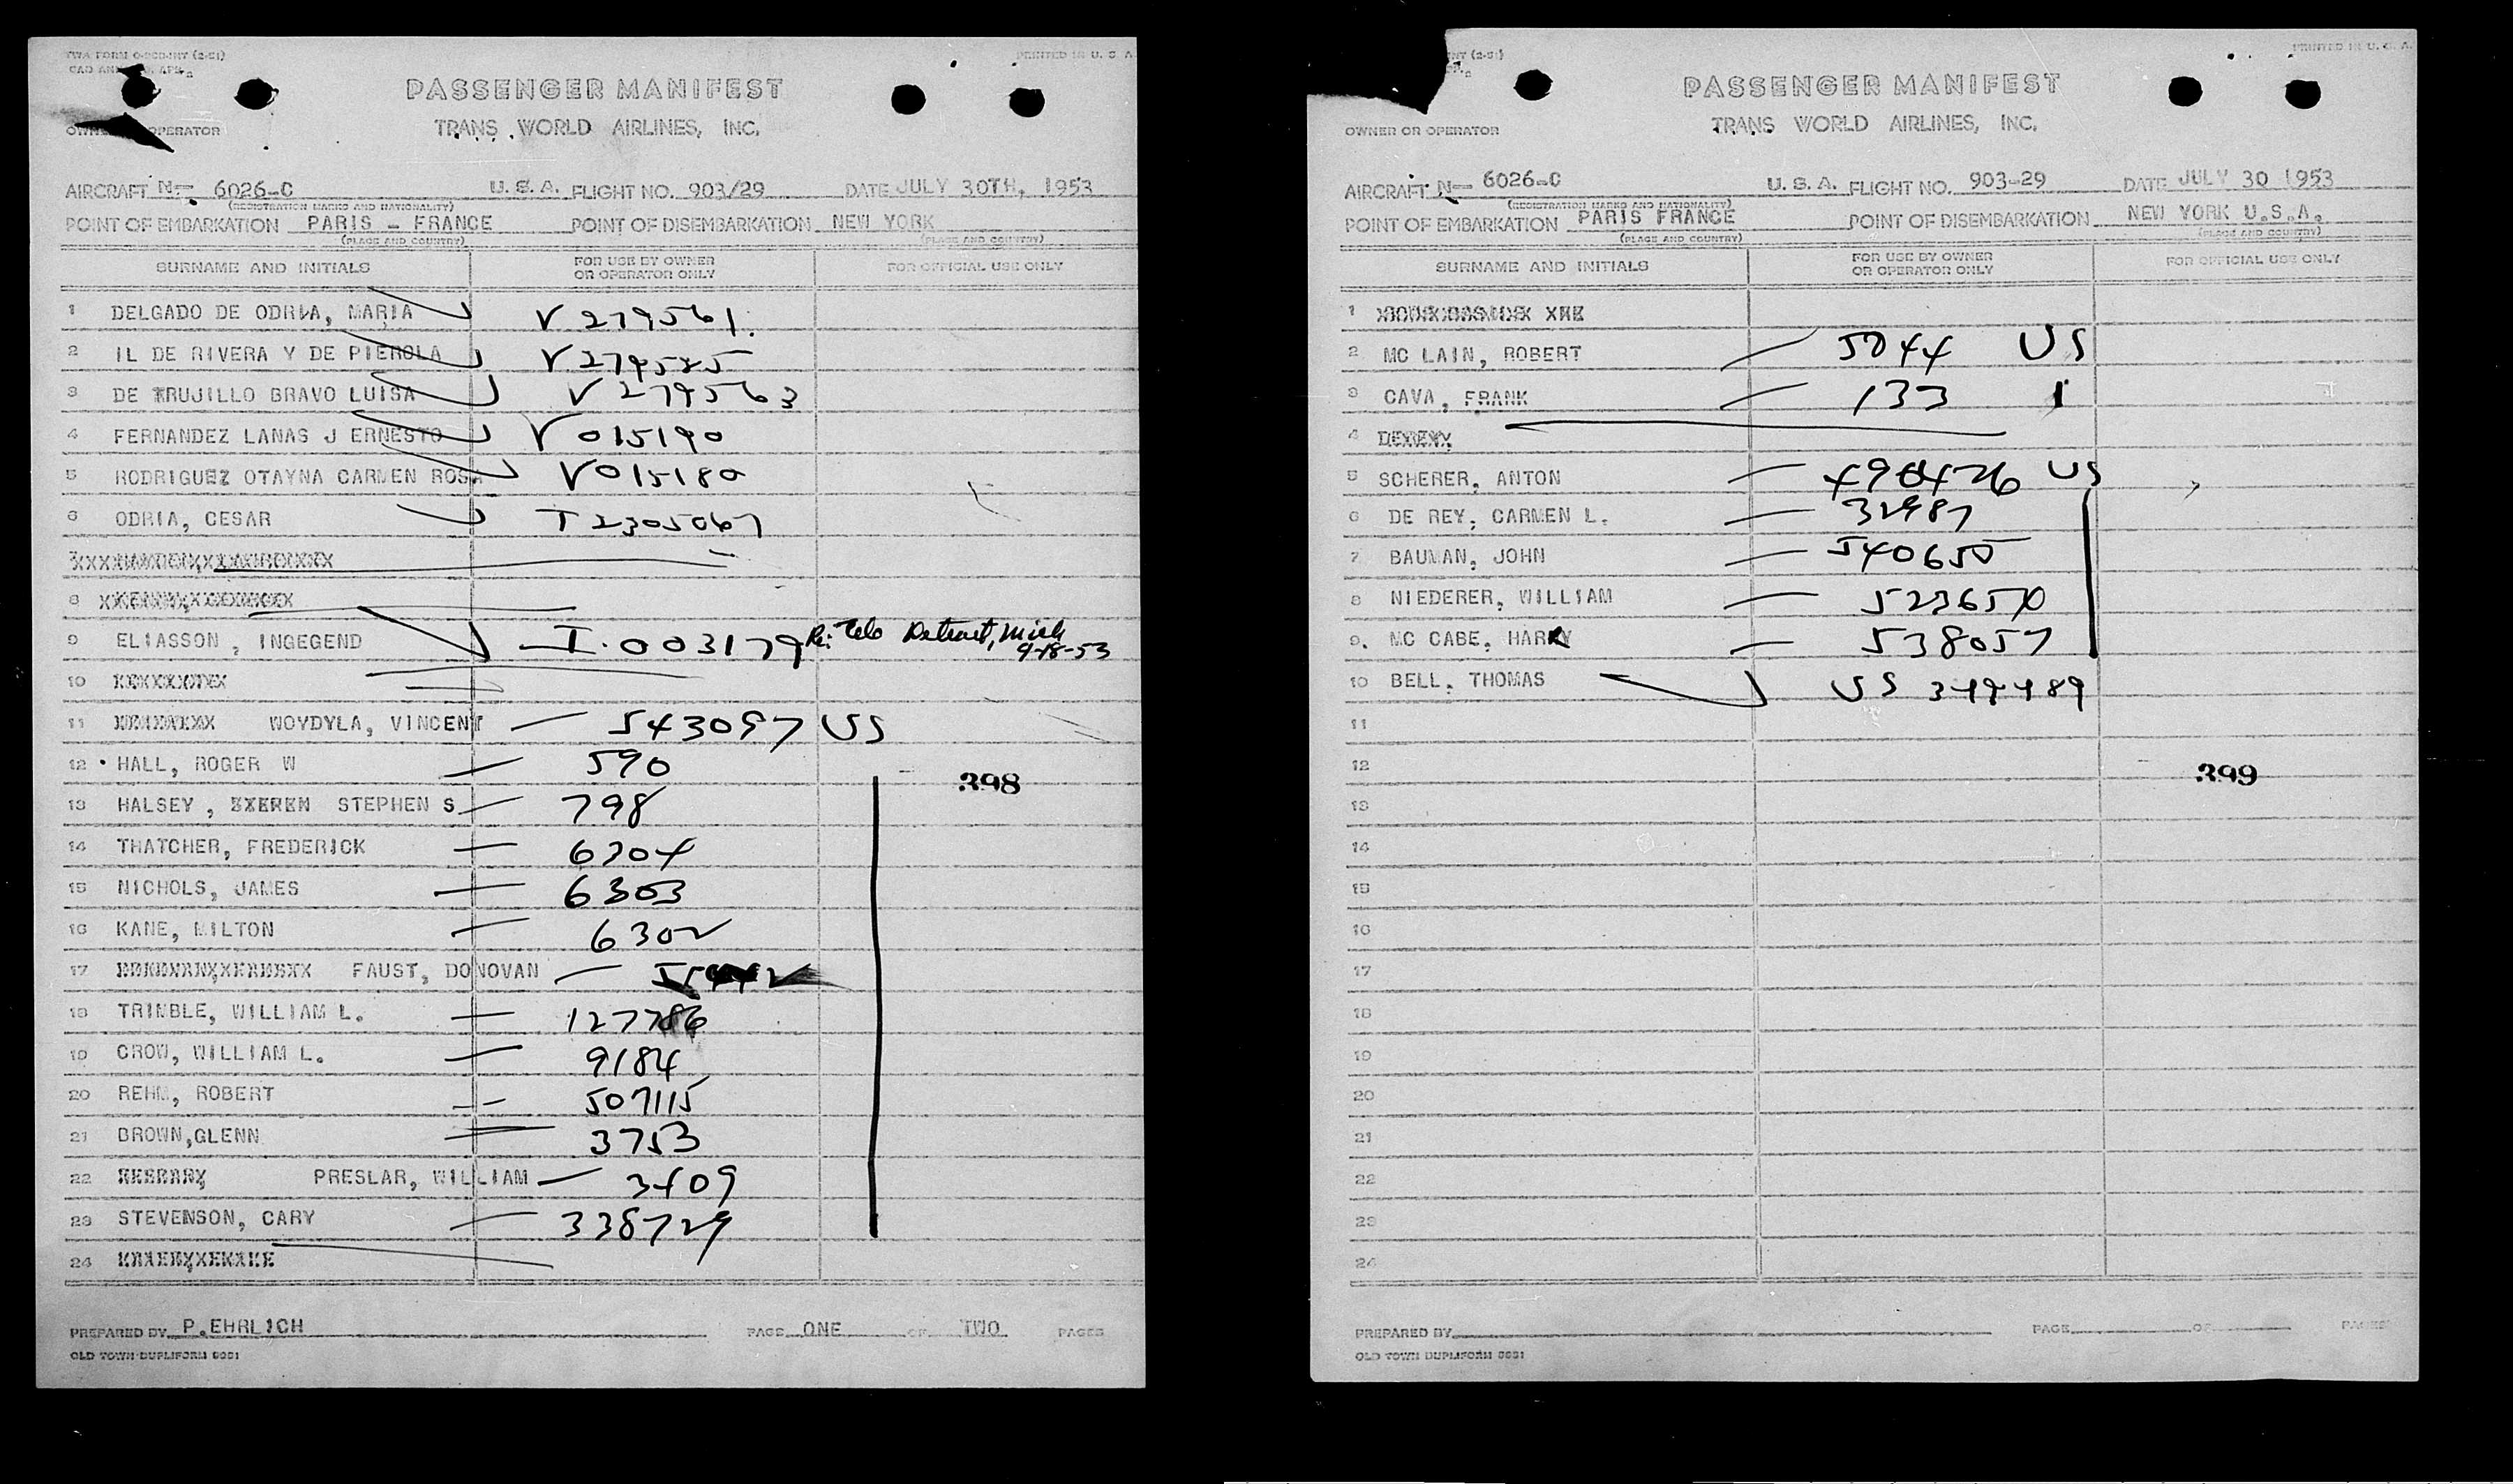 PRINTED IN U. S. A.
PASSENGER MANIFEST
TRANS WORLD AIRLINES, INC.
OPERATOR
AIRCRAFT N- 6026-C U. S. A. FLIGHT NO. 903/29 DATE JULY 30TH, 1953
(REGISTRATION MARKS AND NATIONALITY)
POINT OF EMBARKATION PARIS - FRANCE POINT OF DISEMBARKATION NEW YORK
(PLACE AND COUNTRY) (PLACE AND COUNTRY)
SURNAME AND INITIALS FOR USE BY OWNER OR OPERATOR ONLY FOR OFFICIAL USE ONLY
1 DELGADO DE ODRIA, MARIA V 279561
2 IL DE RIVERA Y DE PIEROLA V 279525
3 DE TRUJILLO BRAVO LUISA V 279563
4 FERNANDEZ LANAS J ERNESTO V 015190
5 RODRIGUEZ OTAYNA CARMEN ROSA V015180
6 ODRIA, CESAR T 2305067
7
8
9 ELIASSON , INGEGEND I.003179 Re: Tels Detroit, Mich
9-18-53
10
11 WOYDYLA, VINCENT 543097 US
12 HALL, ROGER W 590
398
13 HALSEY , STEPHEN S 798
14 THATCHER, FREDERICK 6304
15 NICHOLS, JAMES 6303
16 KANE, MILTON 6302
17 FAUST, DONOVAN
18 TRIMBLE, WILLIAM L. 127786
19 CROW, WILLIAM L. 9184
20 REHM, ROBERT 507115
21 BROWN,GLENN 3753
22 PRESLAR, WILLIAM 3409
23 STEVENSON, CARY 338729
24
PREPARED BY P.EHRLICH PAGE ONE OF TWO PAGES
OLD TOWN DUPLIFORM 5051
PRINTED IN U. S. A.
PASSENGER MANIFEST
TRANS WORLD AIRLINES, INC.
OWNER OR OPERATOR
AIRCRAFT N- 6026-C U. S. A. FLIGHT NO. 903-29 DATE JULY 30 1953
(REGISTRATION MARKS AND NATIONALITY)
POINT OF EMBARKATION PARIS FRANCE POINT OF DISEMBARKATION NEW YORK U.S.A.
(PLACE AND COUNTRY) (PLACE AND COUNTRY)
SURNAME AND INITIALS FOR USE BY OWNER OR OPERATOR ONLY FOR OFFICIAL USE ONLY
1
2 MC LAIN, ROBERT 5044 US
3 CAVA, FRANK 133
4
5 SCHERER, ANTON 490426 US
6 DE REY, CARMEN L. 32987
7 BAUMAN, JOHN 540655
8 NIEDERER, WILLIAM 523650
9. MC CABE, HARRY 538057
10 BELL, THOMAS US 349489
11
12
399
13
14
15
16
17
18
19
20
21
22
23
24
PREPARED BY PAGE OF PAGES
OLD TOWN DUPLIFORM 5051